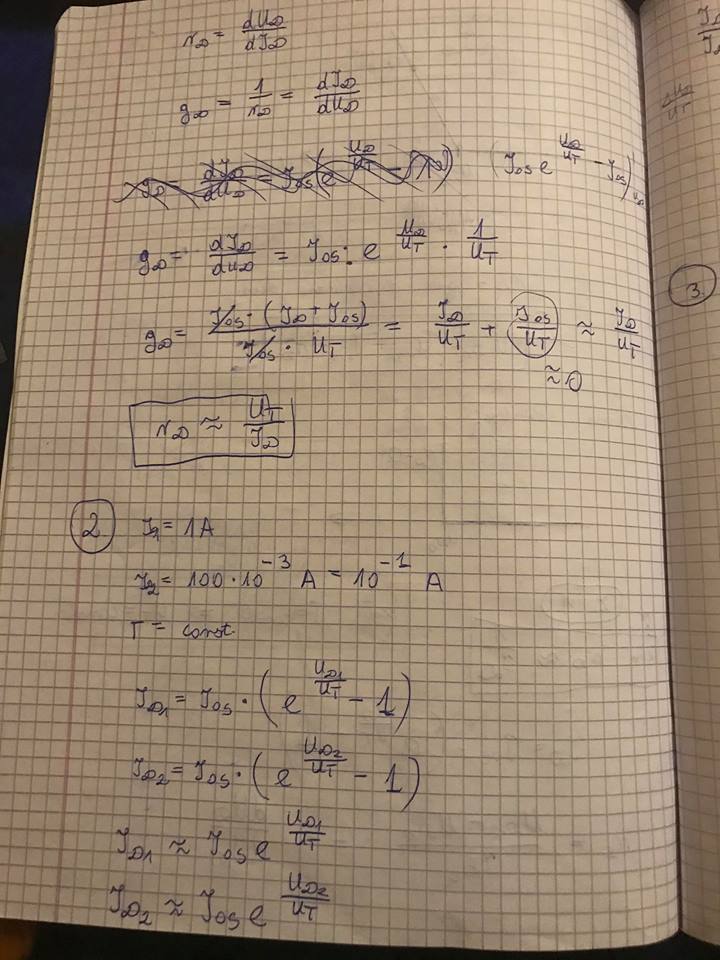 r_D = dU_D/dI_D
g_D = 1/r_D = dI_D/dU_D
(I_DS e^(U_D/U_T) - I_DS)'_(U_D)
g_D = dI_D/dU_D = I_DS · e^(U_D/U_T) · 1/U_T
g_D = (I_DS · (I_D + I_DS))/(I_DS · U_T) = I_D/U_T + I_DS/U_T ≈ I_D/U_T
≈ 0
r_D ≈ U_T/I_D
2 I_1 = 1A
I_2 = 100 · 10^-3 A = 10^-1 A
T = const.
I_D1 = I_DS · (e^(U_D1/U_T) - 1)
I_D2 = I_DS · (e^(U_D2/U_T) - 1)
I_D1 ≈ I_DS e^(U_D1/U_T)
I_D2 ≈ I_DS e^(U_D2/U_T)
3.